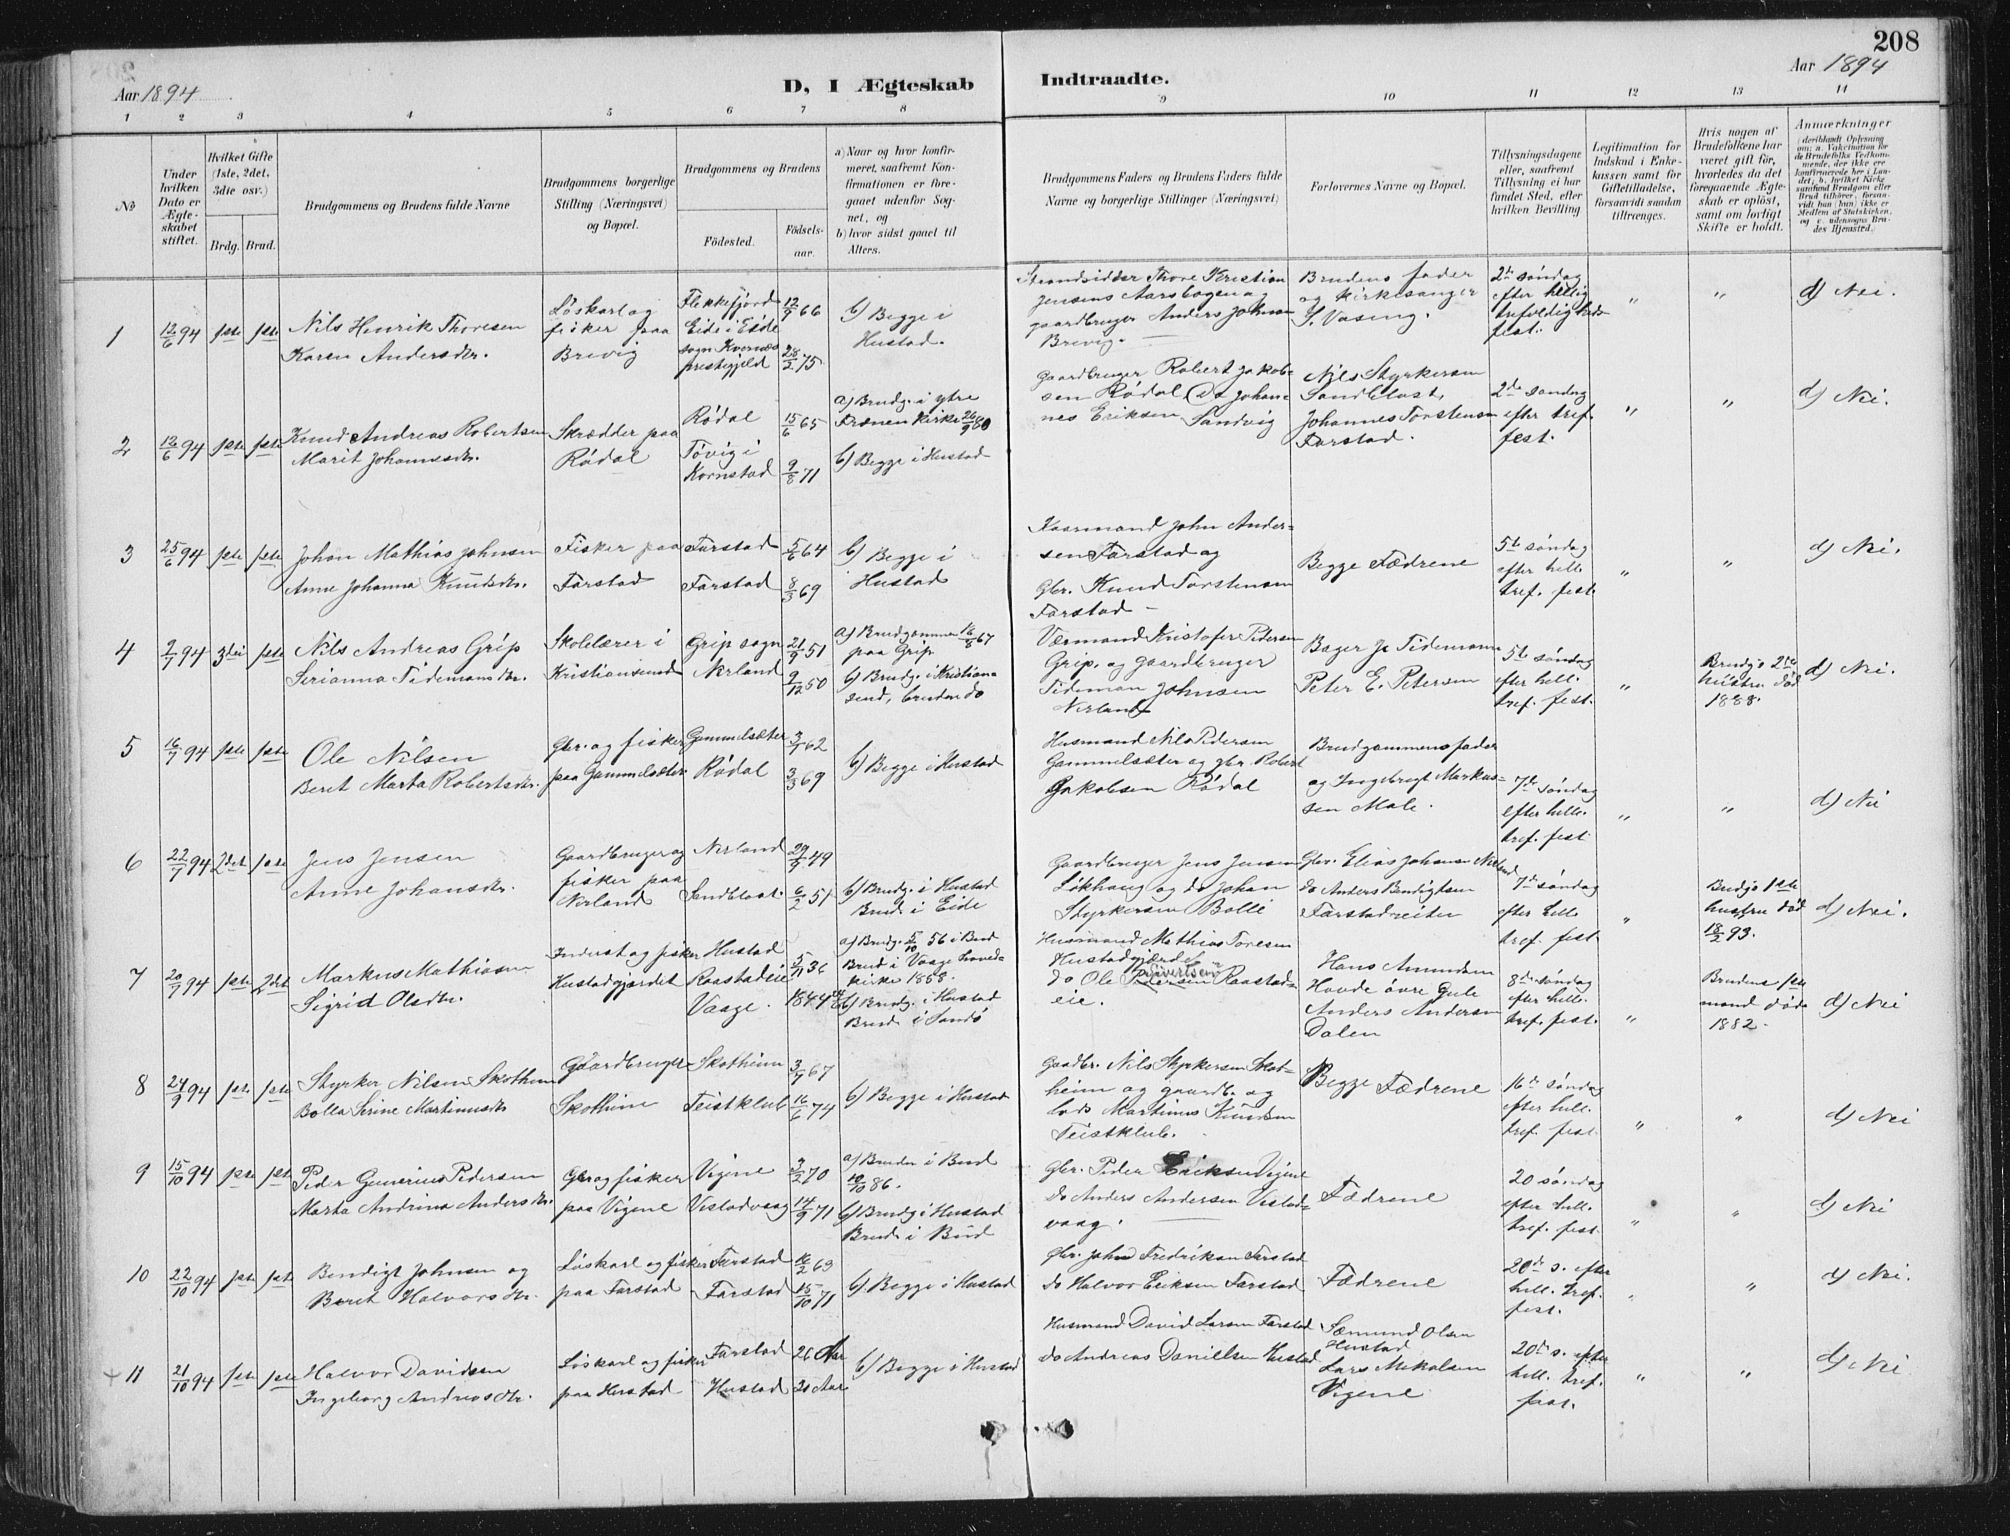 208
Aar 1894
D, I Ægteskab Indtraadte.
Aar 1894
1 2 3 4 5 6 7 8 9 10 11 12 13 14
No
Under hvilken Dato er Ægteskabet stiftet.
Hvilket Gifte (1ste, 2det, 3die osv.)
Brdg. Brud.
Brudgommens og Brudens fulde Navne
Brudgommens borgerlige Stilling (Næringsvei) og Bopæl.
Brudgommens og Brudens
Födested. Födselsaar.
a) Naar og hvor konfirmeret, saafremt Konfirmationen er foregaaet udenfor Sognet, og
b) hvor sidst gaaet til Alters.
Brudgommens Faders og Brudens Faders fulde Navne og borgerlige Stillinger (Næringsvei)
Forlovernes Navne og Bopæl.
Tillysningsdagene eller, saafremt Tillysning ei har fundet Sted, efter hvilken Bevilling
Legitimation for Indskud i Enkekassen samt for Giftetilladelse, forsaavidt saadan tiltrænges.
Hvis nogen af Brudefolkene har været gift för, hvorledes da det foregaaende Ægteskab er oplöst, samt om lovligt Skifte er holdt.
Anmærkninger
1 12/6 94 1ste 1ste
Nils Henrik Thoresen
Karen Andersdtr.
Löskarl og
fisker paa
Brevig
Flekkefjord
Eide i Eide
sogn Kvernæs
prestegjeld
12/9 66
28/2 75
b) Begge i
Hustad.
Strandsidder Thore Kristian
Jensens Aarsbogen og
gaardbruger Anders Johnsen
Brevig.
Brudens fader
og Kirkesanger
S. Vaseng.
2de söndag
efter hellig
trefoldigheds
fest.
" "
d) Nei.
2 12/6 94 1ste 1ste
Knud Andreas Robertsen
Marit Johannesdtr.
Skrædder paa
Rödal
Rödal
Tövig i
Kornstad
15/6 65
9/8 71
a) Brudg. i ytre
Frænen Kirke 26/9 80
b) Begge i Hustad
Gaardbruger Robert Jakob-
sen Rödal (Do Johan-
nes Eriksen Sandvig
Nils Styrkersen
Sandblaast,
Johannes Torstensen
Farstad.
2de söndag
efter tref.
fest.
" "
d) Nei.
3 25/6 94 1ste 1ste
Johan Mathias Johnsen
Anne Johanna Knudsdtr.
Fisker paa
Farstad
Farstad
Farstad
5/6 64
8/3 69
b) Begge i
Hustad
Kaarmand John Ander-
sen Farstad og
Gbr. Knud Torstensen
Farstad
Begge Fædrene
5te söndag
efter hell.
tref. fest.
" "
d) Nei.
4 2/7 94 3die 1ste
Nils Andreas Grip
Serianna Tidemansdtr.
Skolelærer i
Kristiansund
Grip sogn
Nerland
21/9 51
9/12 50
a) Brudgommen 16/6 67
paa Grip.
b) Brudg. i Kristian-
sund, bruden do
Værmand Kristofer Pedersen
Grip. og gaardbruger
Tideman Johnsen
Nerland
Bager J. Tidemann
Peter E. Petersen
5te söndag
efter hell.
tref. fest.
"
Brudgs 2den
hustru död
1888.
d) Nei.
5 16/7 94 1ste 1ste
Ole Nilsen
Beret Marta Robertsdtr.
Gbr. og fisker
paa Gammelsæter
Gammelsæter
Rödal
3/5 62
3/3 69
b) Begge i Hustad
Husmand Nils Pedersen
Gammelsæter og gbr. Robert
Jakobsen Rödal
Brudgommens fader
og Ingebregt Markus-
sen Male.
7de söndag
efter hell.
tref. fest
" "
d) Nei
6 22/7 94 2det 1ste
Jens Jensen
Anne Johansdtr.
Gaardbruger og
fisker paa
Nerland
Nerland
Sandblaast
29/9 49
6/2 51
b) Brudg. i Hustad
Brud. i Eide
Gaardbruger Jens Jensen
Lökhaug og do Johan
Styrkersen Bolli
Gbr. Elias Johansen Nerland
do Anders Bendigtsen
Farstadreiten
7de söndag
efter hell.
tref. fest
"
Brudgs 1ste
hustru död
18/2 93.
d) Nei.
7 20/7 94 1ste 2det
Markus Mathiasen
Sigrid Olsdtr.
Inderst og fisker
Hustadgjærdet
Hustad
Raastadeie
Vaage.
5/11 36
1844
a) Brudg. 5/10 56 i Bud
Brud i Vaage hoved-
kirke 1858.
b) Brudg. i Hustad
Brud i Sandö
Husmand Mathias Toresen
Hustadgjærdet
do Ole Sivertsen Raastad-
eie.
Hans Amundsen
Hovde övre Gule
Anders Andersen
Dalen
8de söndag
efter hell.
tref. fest.
"
Brudens 1ste
mand döde
1882.
d) Nei
8 24/9 94 1ste 1ste
Styrker Nilsen Skotheim
Bolla Serine Martinusdtr
Gaardbruger
Skotheim
Skotheim
Teistklub
3/7 67
16/6 74
b) Begge i Hustad
Gaardbr. Nils Styrkersen Skot-
heim og gaardb. og
lods Martinus Knudsen
Teistklub.
Begge Fædrene
16de söndag
efter hell.
tref. fest.
" "
d) Nei
9 15/10 94 1ste 1ste
Peder Gunerius Pedersen
Marta Andrina Andersdtr.
Gbr og fisker
paa Vigene
Vigene
Vestadvaag
3/2 70
14/9 71
a) Bruden i Bud
10/10 86.
b) Brudg i Hustad
Brud. i Bud
Gbr. Peder Eriksen Vigene
do Anders Andersen Vestad-
vaag.
Fædrene
20 söndag
efter hell.
tref. fest.
" "
d) Nei
10 22/10 94 1ste 1ste
Bendigt Johnsen og
Beret Halvorsdtr.
Löskarl og fisker
paa Farstad
Farstad
Farstad
16/2 63
15/10 71
b) Begge i Hustad
Gbr. John Fredriksen Farstad
do Halvor Eriksen Farstad
Fædrene
20de s. efter
hell. tref.
fest.
" "
d) Nei.
11 21/10 94 1ste 1ste
Halvor Davidsen
Ingeborg Andreasdtr.
Löskarl og fisker
paa Hustad
Farstad
Hustad
26 Aar
20 Aar
b) Begge i Hustad
Husmand David Larsen Farstad
do Andreas Danielsen Hustad
Sæmund Olsen
Hustad
Lars Mikalsen
Vigene
20de s. efter
hell. tref.
fest.
" "
d) Nei